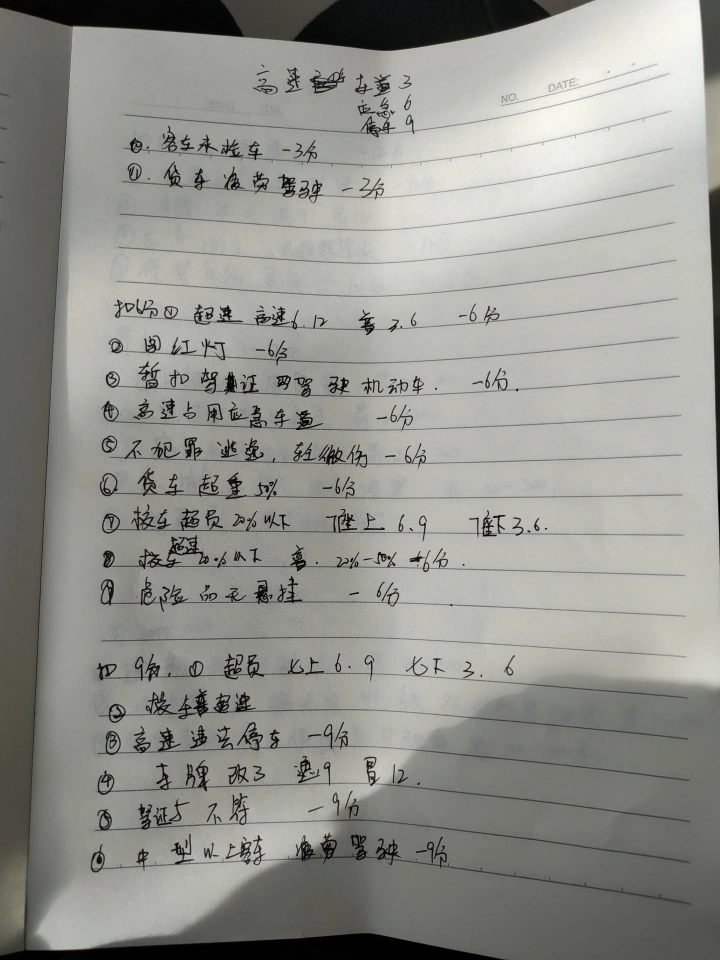 高速 车道 3
应急 6
停车 9
NO. DATE:
⑩. 客车未检车 -3分
⑪. 货车疲劳驾驶 -3分
扣6分① 超速 高速6.12 普 3.6 -6分
② 闯红灯 -6分
③ 暂扣驾驶证 驾驶机动车. -6分.
④ 高速占用应急车道 -6分
⑤ 不犯罪 逃逸, 轻微伤 -6分
⑥. 货车超重50% -6分
⑦ 校车超员20%以下 7座上 6.9 7座下3.6.
⑧ 校车超速20%以下 高. 20%-50% -6分.
⑨ 危险品无悬挂 - 6分
扣 9分. ① 超员 七上 6.9 七下 3. 6
② 校车普超速
③ 高速违法停车 -9分
④ 车牌 改3 遮9 冒12.
⑤ 驾证与 不符 -9分
⑥ 中型以上客车 疲劳驾驶 -9分